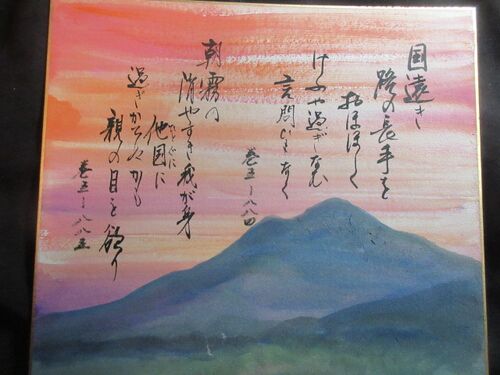 国遠き
路の長手を
おほほしく
けふや過ぎなむ
言問ひもなく
巻五ー八八四
朝霧の
消やすき我が身
他国に
ひとぐに
過ぎかてぬかも
親の目を欲り
巻五ー八八五